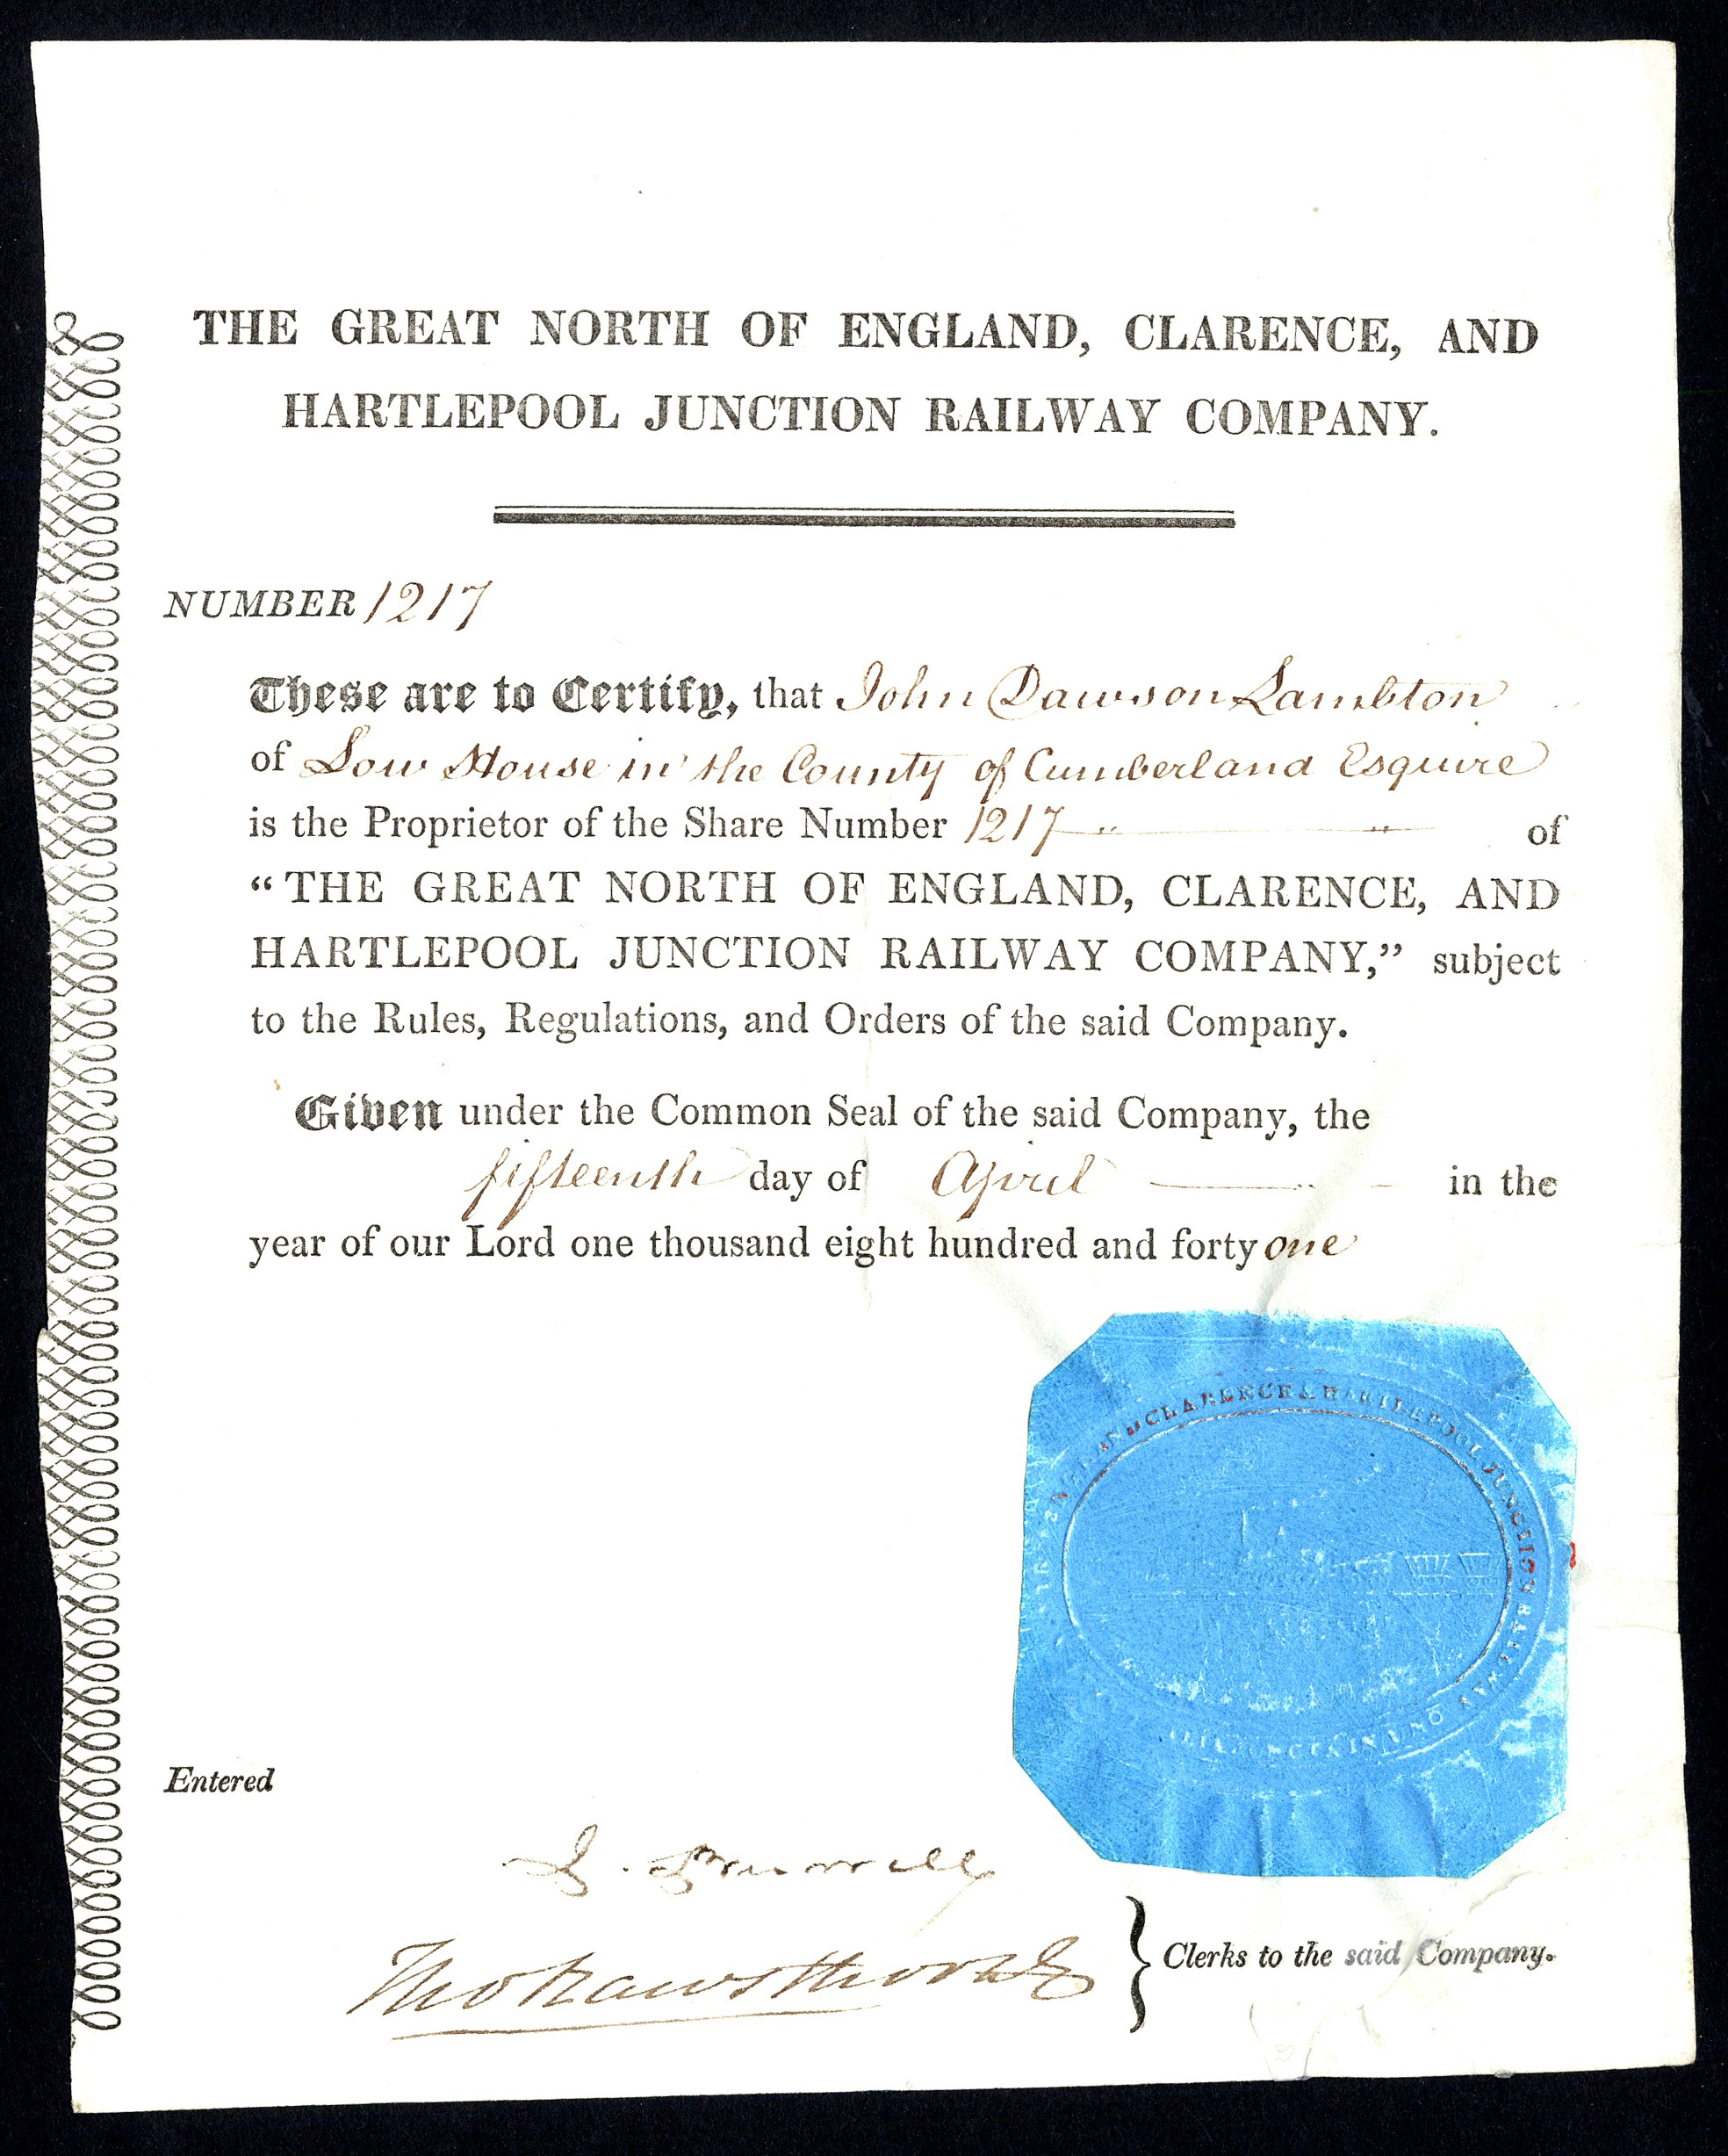 THE GREAT NORTH OF ENGLAND, CLARENCE, AND
HARTLEPOOL JUNCTION RAILWAY COMPANY.
NUMBER 1217
These are to Certify, that John Dawson Lambton
of Low House in the County of Cumberland Esquire
is the Proprietor of the Share Number 1217 of
"THE GREAT NORTH OF ENGLAND, CLARENCE, AND
HARTLEPOOL JUNCTION RAILWAY COMPANY," subject
to the Rules, Regulations, and Orders of the said Company.
Given under the Common Seal of the said Company, the
fifteenth day of April in the
year of our Lord one thousand eight hundred and forty one
CLARENCE & HARTLEPOOL JUNCTION RAILWAY
Entered
Clerks to the said Company.